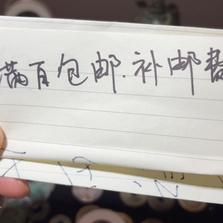 满百包邮.补邮